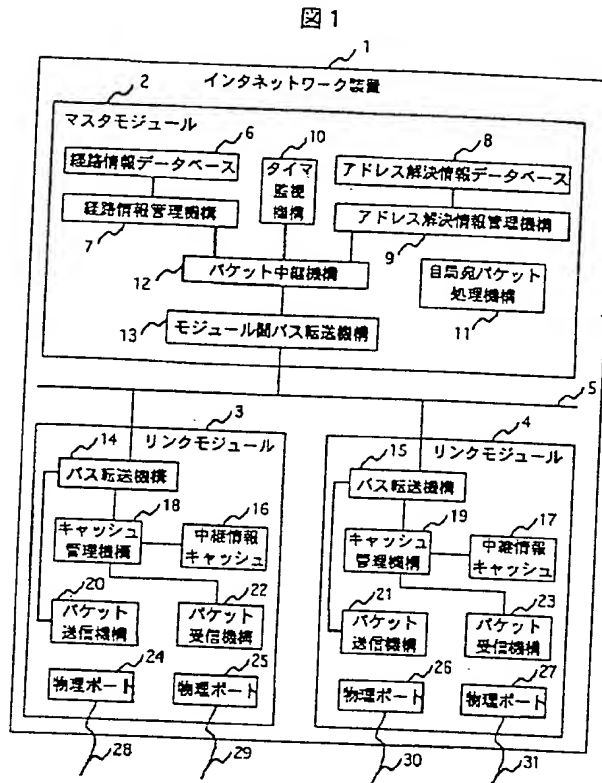 図1
1
インタネットワーク装置
2
マスタモジュール
6
経路情報データベース
10
タイマ
監視
機構
8
アドレス解決情報データベース
経路情報管理機構
7
アドレス解決情報管理機構
9
12
パケット中継機構
自局宛パケット
処理機構
11
13
モジュール間バス転送機構
5
3
リンクモジュール
14
バス転送機構
18
キャッシュ
管理機構
16
中継情報
キャッシュ
20
パケット
送信機構
22
パケット
受信機構
24
物理ポート
25
物理ポート
28
29
4
リンクモジュール
15
バス転送機構
19
キャッシュ
管理機構
17
中継情報
キャッシュ
21
パケット
送信機構
23
パケット
受信機構
26
物理ポート
27
物理ポート
30
31